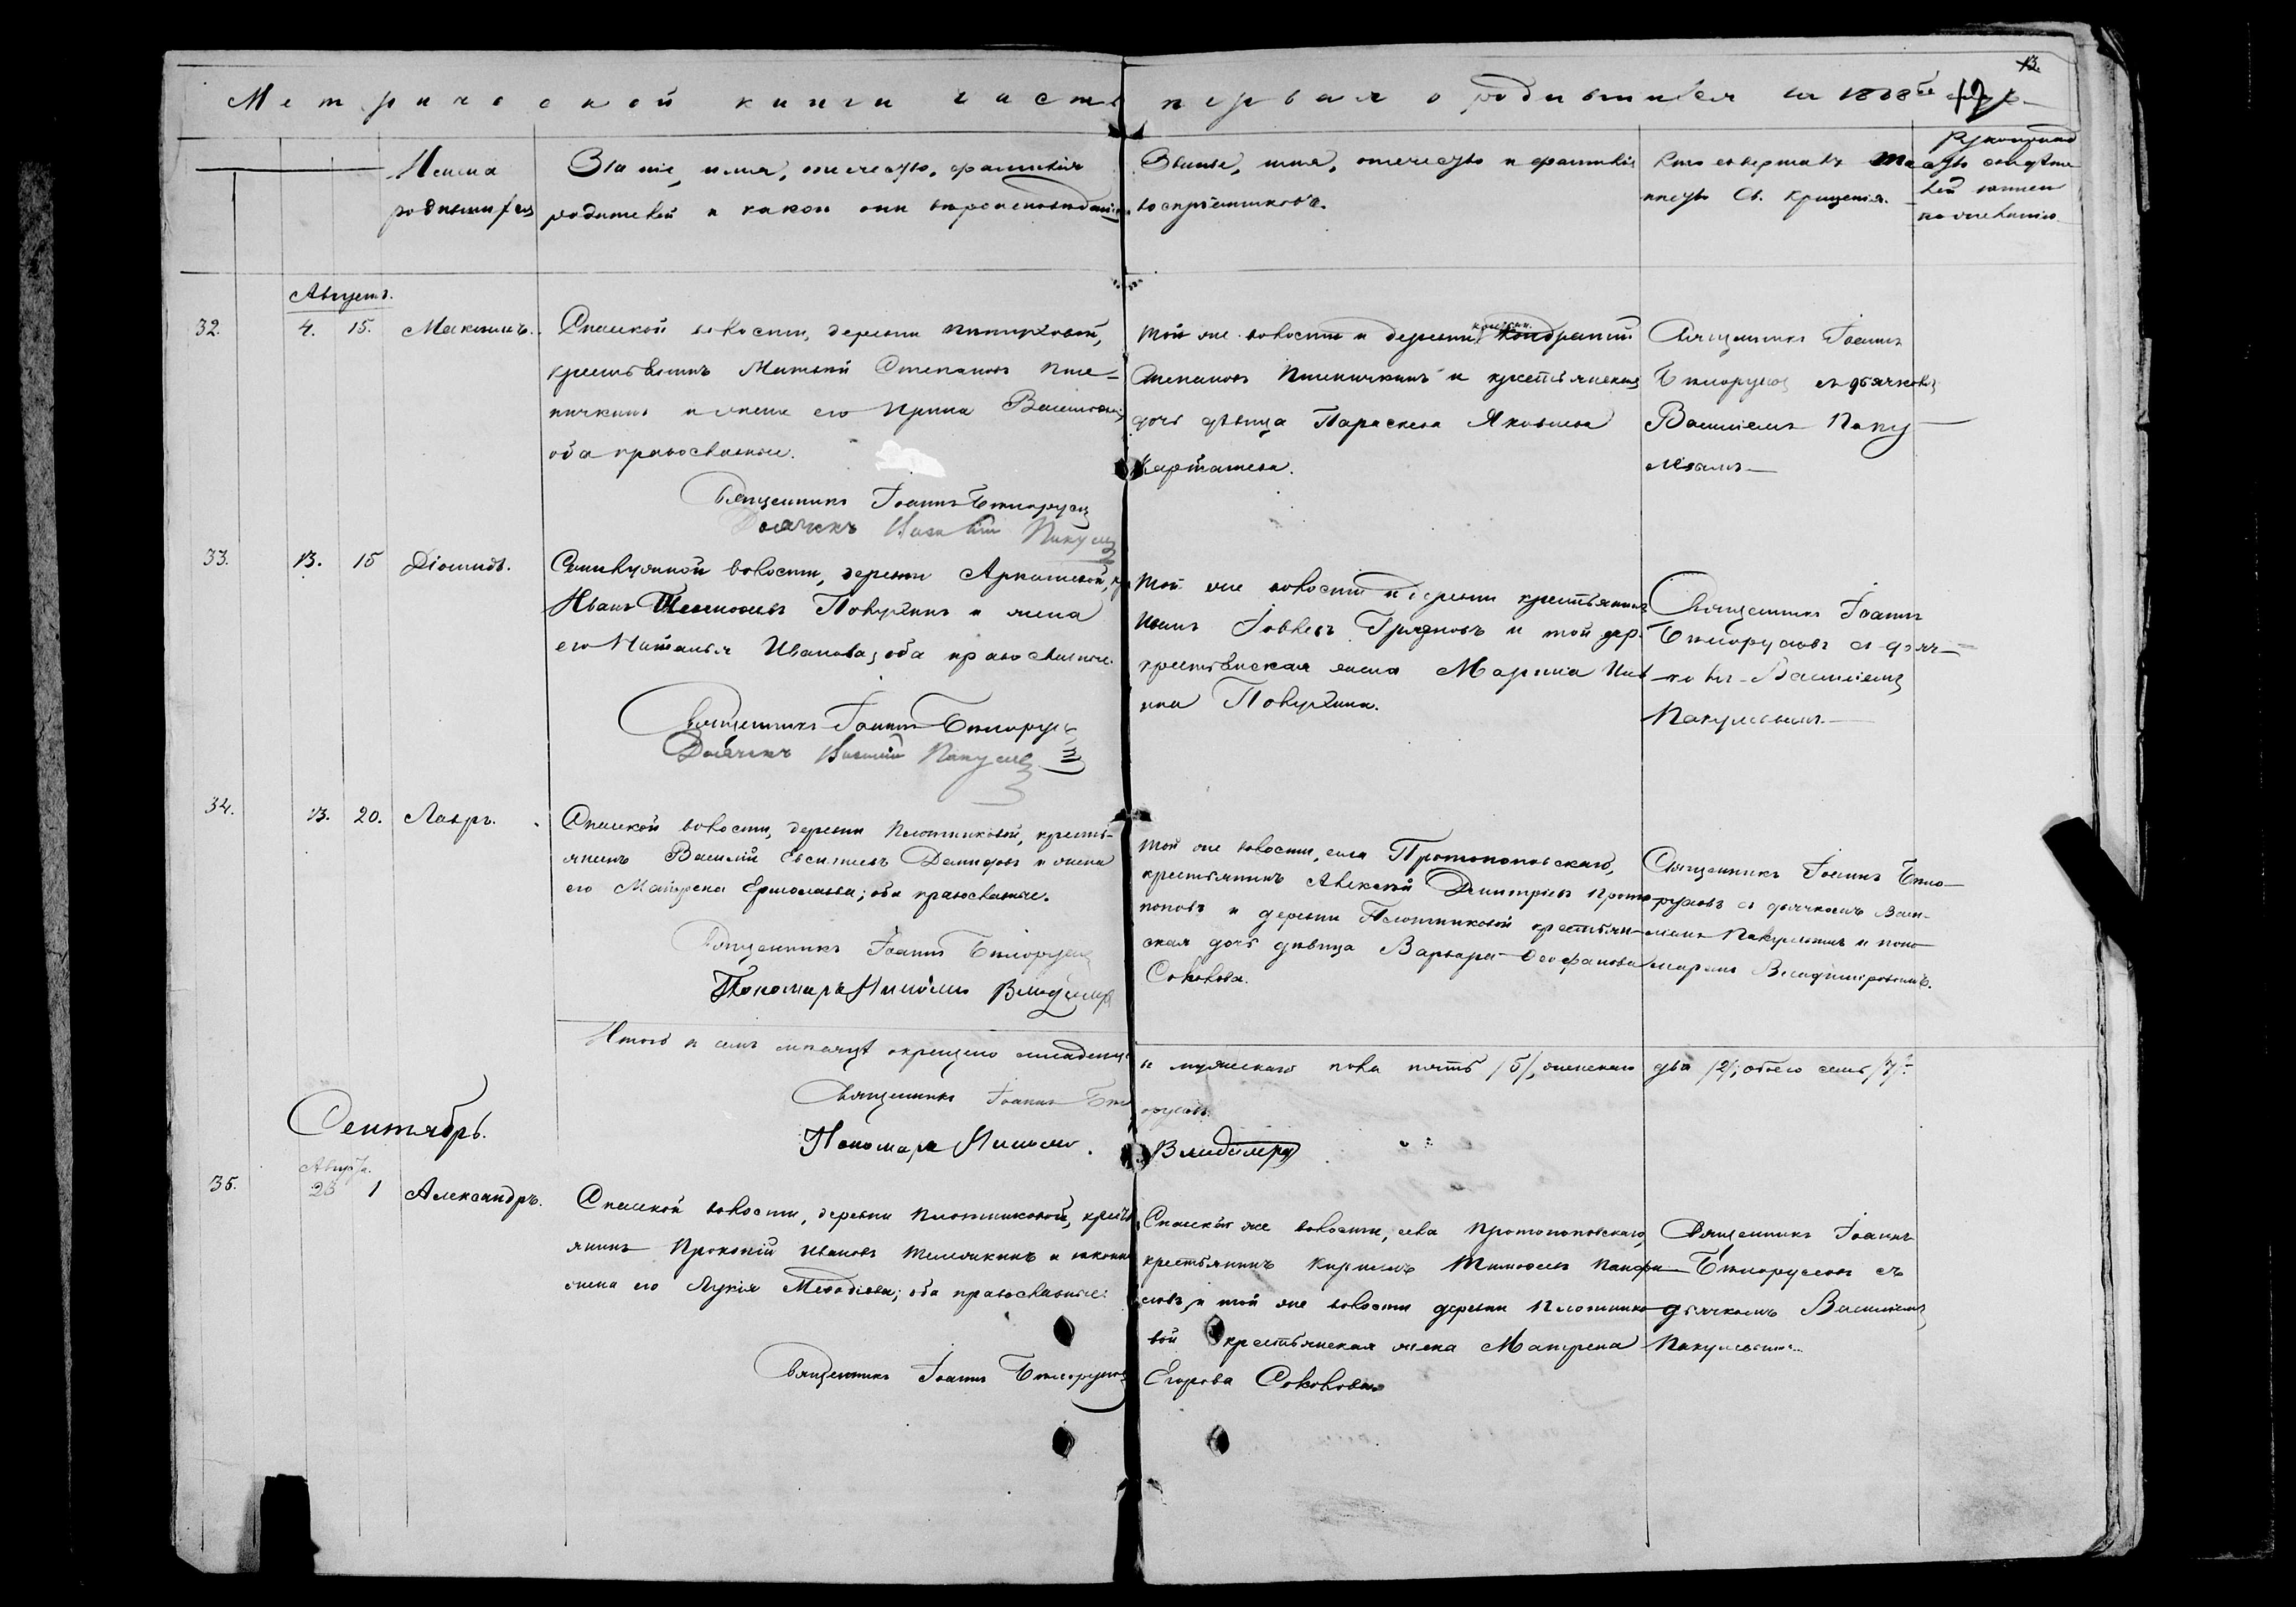 13.
Метрической книги часть первая о родившихся за 1868й годъ
Имена
родившихся
Званіе, имя, отчество, фамилія
родителей и какого они вѣроисповѣданія
Званіе, имя, отчество и фамилія
воспріемниковъ.
Кто совершалъ таи
инство Св. Крещенія.
Рукоприклад
ство свидѣте
лей записи
по желанію
Августъ.
32.
4.
15.
Максимъ.
Спасской волости, деревни
крестьянинъ Матвѣй Степановъ Пше-
ничкинъ и жена его Ирина Васильева,
оба православные.
Священникъ Іоаннъ Бѣлорусовъ
Дьячекъ Василій
Той же волости и деревни крестьян. Кондратій
Степановъ Пшеничкинъ и крестьянская
дочь дѣвица Параскева Яковлева
Карташева.
Священникъ Іоаннъ
Бѣлорусовъ съ дьячкомъ
Василіемъ
33.
13.
15
Діомидъ.
волости, деревни Аркашевой, кр
Иванъ Полухинъ и жена
его Наталья Иванова; оба православные.
Священникъ Іоаннъ Бѣлорусовъ
Дьячекъ Василій
Той же волости и деревни крестьянинъ
Иванъ Іовлевъ Грязновъ и той дер.
крестьянская жена Марина Ива
нова Полухина.
Священникъ Іоаннъ
Бѣлорусовъ съ дьяч-
комъ Василіемъ
34.
13.
20.
Лавръ.
Спасской волости, деревни Плотниковой, кресть-
янинъ Василій Евсигнеевъ Демидовъ и жена
его Матрена Ермолаева; оба православные.
Священникъ Іоаннъ Бѣлорусовъ
Пономарь Николай Владиміровъ
Той же волости, села Протопоповскаго,
крестьянинъ Алексѣй Дмитріевъ Прото
поповъ и деревни Плотниковой крестьян-
ская дочь дѣвица Варвара Ѳеофанова
Соколова.
Священникъ Іоаннъ Бѣло-
русовъ съ дьячкомъ Васи-
ліемъ и поно-
маремъ Владиміровымъ.
Итого въ семъ мѣсяцѣ окрещено младенце
въ мужескаго пола пять /5/, женскаго два /2/; обоего семь /7/.
Священникъ Іоаннъ Бѣл
орусовъ
Пономарь Николай Владиміровъ
Сентябрь.
Августа.
35.
23
1
Александръ.
Спасской волости, деревни Плотниковой, кресть
янинъ Прокопій Ивановъ и законная
жена его Лукія Меѳодіева; оба православные.
Священникъ Іоаннъ Бѣлорусовъ
Спасской же волости, села Протопоповскаго,
крестьянинъ Кириллъ Тимоѳеевъ Панфи
ловъ, и той же волости деревни Плотнико
вой крестьянская жена Матрена
Егорова Соколова.
Священникъ Іоаннъ
Бѣлорусовъ съ
дьячкомъ Василіемъ